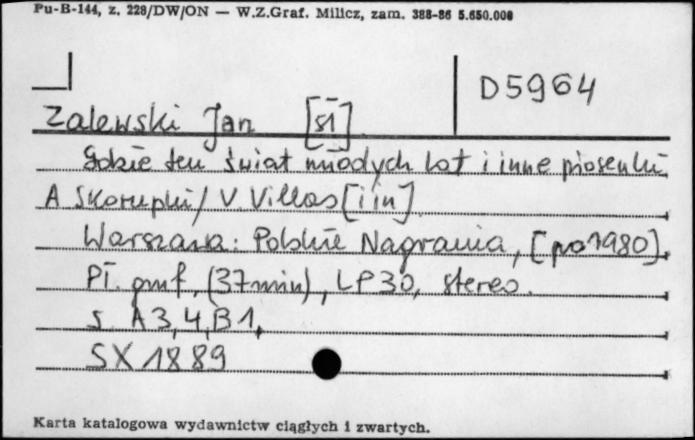 Pu-B-144, z. 228/DW/ON — W.Z.Graf. Milicz, zam. 388-86 5.650.000
D5964
Zalewski Jan [sł]
Gdzie ten świat młodych lat i inne piosenki
A Skorupki / V. Villas [i in]
Warszawa: Polskie Nagrania, [po 1980].
Pł. gmf, (37 min), LP 30, stereo.
s. A 3, 4, B 1,
SX 1889
Karta katalogowa wydawnictw ciągłych i zwartych.